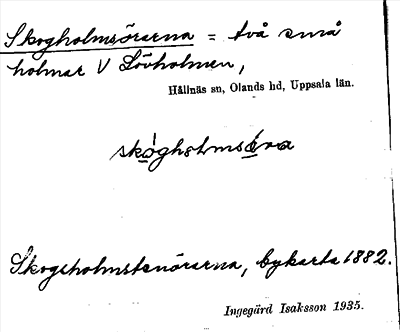 Skogholmsörarna = två små
holmar V Lövholmen,
Hållnäs sn, Olands hd, Uppsala län.
skógholmsöra
Skogsholmstenörarna, bykarta 1882.
Ingegärd Isaksson 1935.